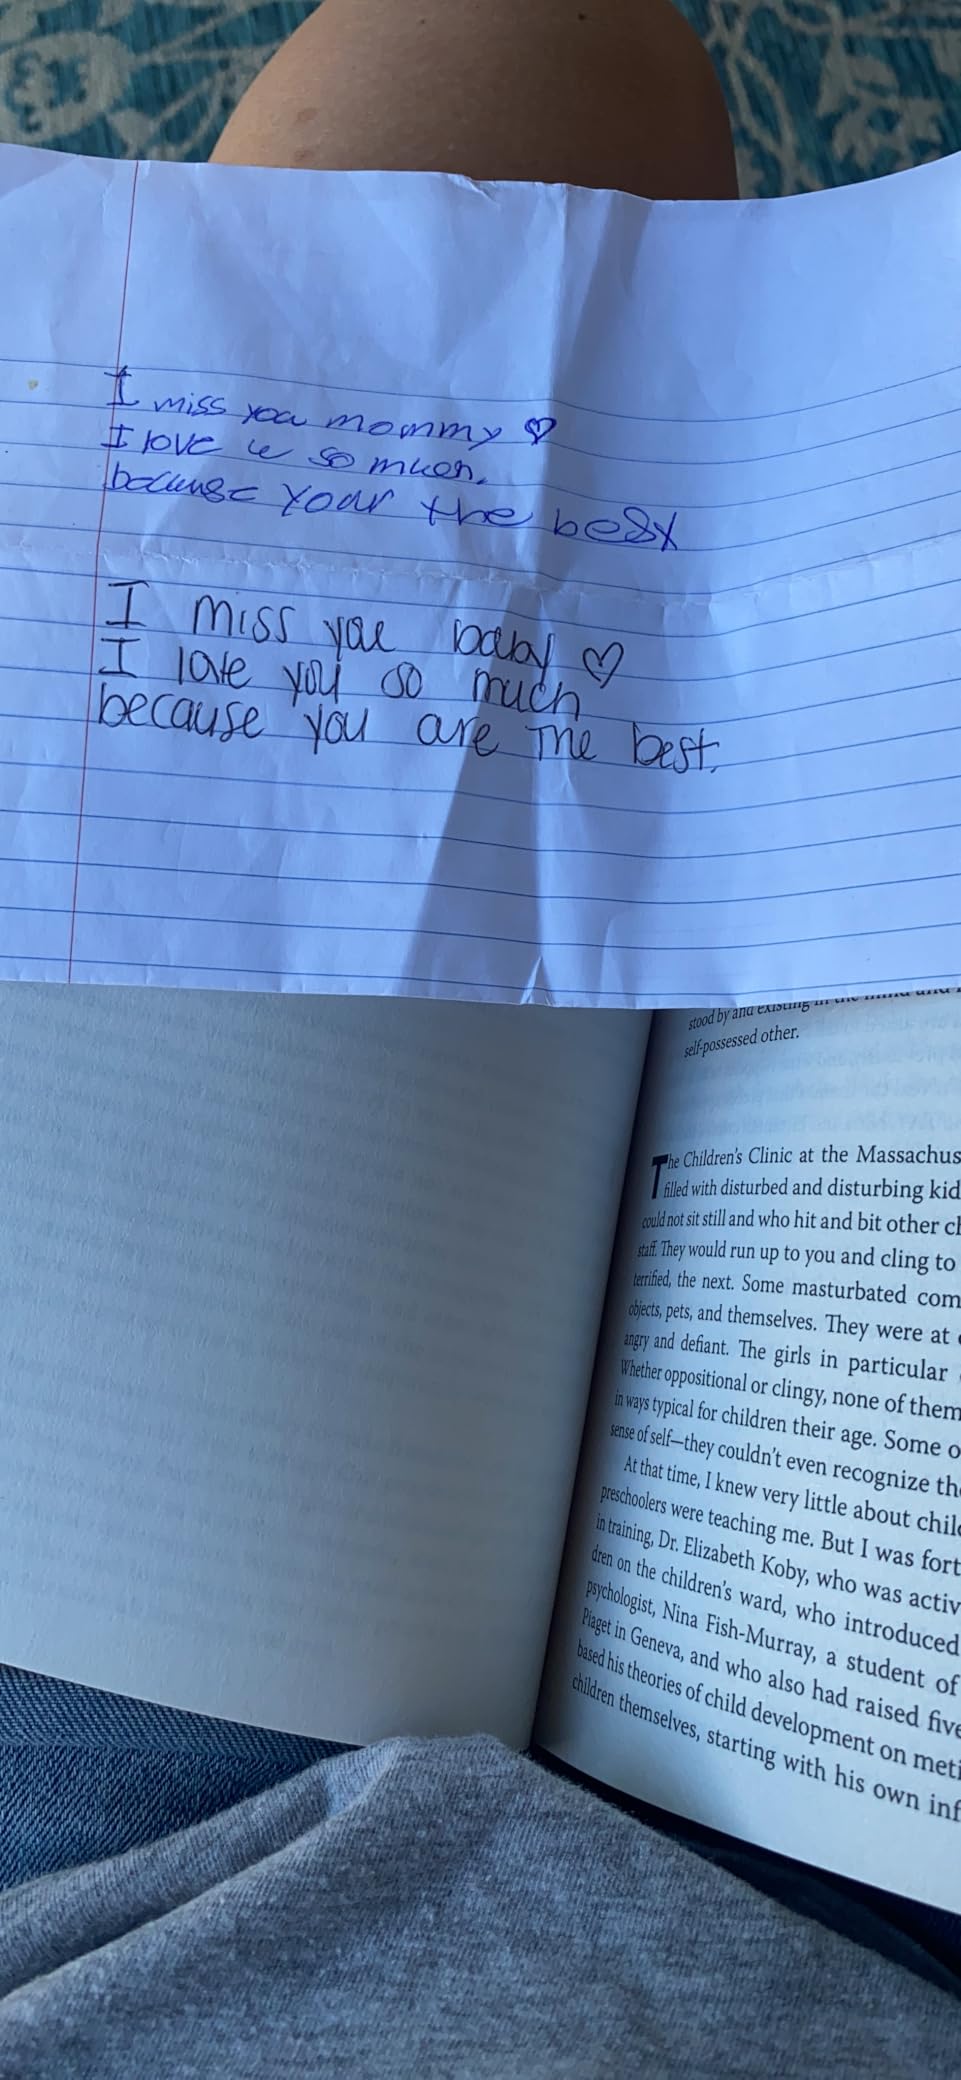 I miss you mommy ♡
I love u so much.
because your the best
I miss you baby ♡
I love you so much
because you are the best.
stood by and existing in the mind and
self-possessed other.
The Children's Clinic at the Massachus
filled with disturbed and disturbing kid
could not sit still and who hit and bit other ch
staff. They would run up to you and cling to
terrified, the next. Some masturbated com
objects, pets, and themselves. They were at
angry and defiant. The girls in particular
Whether oppositional or clingy, none of them
in ways typical for children their age. Some o
sense of self—they couldn't even recognize the
At that time, I knew very little about chil
preschoolers were teaching me. But I was fort
in training, Dr. Elizabeth Koby, who was activ
dren on the children's ward, who introduced
psychologist, Nina Fish-Murray, a student of
Piaget in Geneva, and who also had raised five
based his theories of child development on meti
children themselves, starting with his own inf